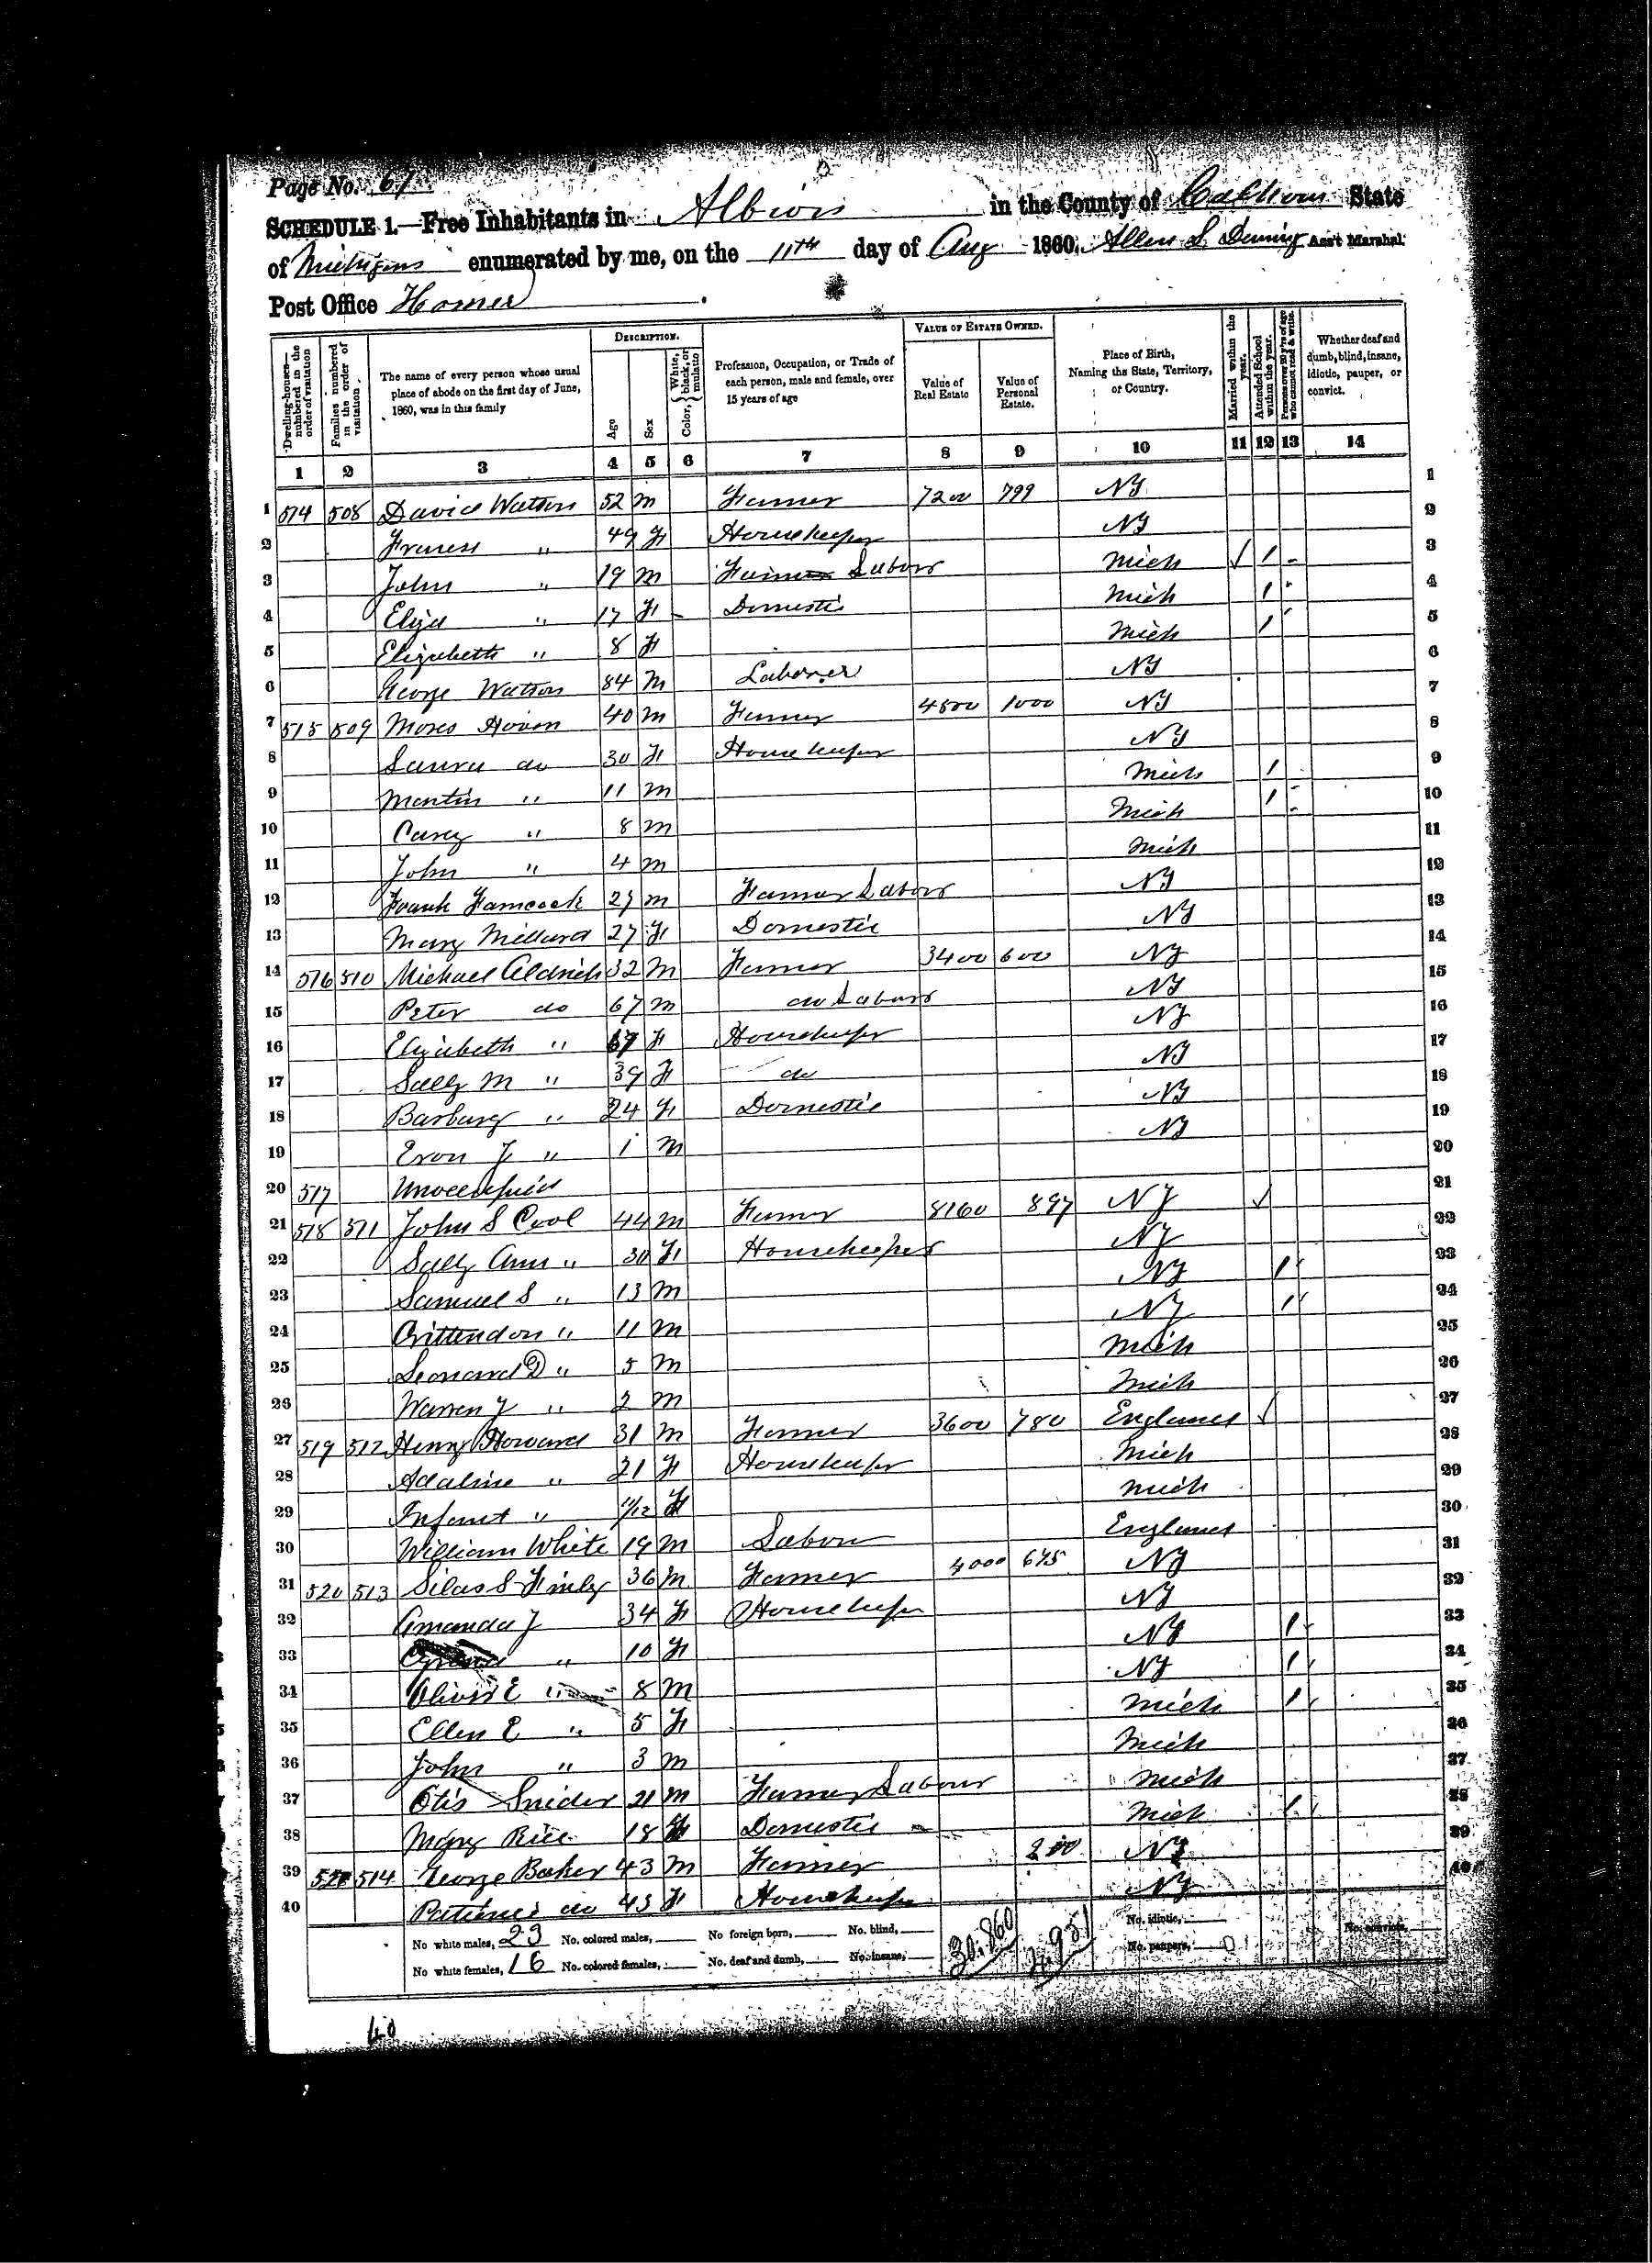 Page No. 67
SCHEDULE 1.—Free Inhabitants in Albion in the County of Calhoun State
of Michigan enumerated by me, on the 11th day of Aug 1860. Allen S. Deming Ass't Marshal.
Post Office Homer
Dwelling-houses—numbered in the order of visitation
Families numbered in the order of visitation
The name of every person whose usual place of abode on the first day of June, 1860, was in this family
DESCRIPTION.
Age
Sex
Color, White, black, or mulatto
Profession, Occupation, or Trade of each person, male and female, over 15 years of age
VALUE OF ESTATE OWNED.
Value of Real Estate
Value of Personal Estate.
Place of Birth, Naming the State, Territory, or Country.
Married within the year.
Attended School within the year.
Persons over 20 y'rs of age who cannot read & write.
Whether deaf and dumb, blind, insane, idiotic, pauper, or convict.
1 2 3 4 5 6 7 8 9 10 11 12 13 14
1 514 508 David Watson 52 m Farmer 7200 799 NY 1
2 " 49 F Housekeeper NY 2
3 John " 19 m Labor Mich √ / 3
4 Eliza " 17 F Domestic Mich / 4
5 Elizabeth " 8 F Mich / 5
6 George Watson 84 M Laborer NY 6
7 515 509 Moses 40 m Farmer 4800 1000 NY 7
8 Laura do 30 F Housekeeper NY 8
9 Martin " 11 m Mich / 9
10 Carey " 8 m Mich / 10
11 John " 4 m Mich 11
12 Frank 25 m Farmer Labor NY 12
13 Mary Millard 27 F Domestic NY 13
14 516 510 Michael Aldrich 32 m Farmer 3400 600 NY 14
15 Peter do 67 m do Labor NY 15
16 Elizabeth " 67 F Housekeeper NY 16
17 Sally M " 39 F do NY 17
18 Barbary " 24 F Domestic NY 18
19 " 1 m NY 19
20 517 Unoccupied 20
21 518 511 John S Cool 44 m Farmer 8160 897 NY √ 21
22 Sally Ann " 30 F Housekeeper NY 22
23 Samuel S " 13 m NY / 23
24 Crittendon " 11 m NY / 24
25 Leonard D " 5 m Mich 25
26 Warren J " 2 m Mich 26
27 519 512 Henry Howard 31 m Farmer 3600 780 England √ 27
28 Adaline " 21 F Housekeeper Mich 28
29 Infant " 11/12 F Mich 29
30 William White 19 m Labor England 30
31 520 513 Silas S Finley 36 m Farmer 4000 675 NY 31
32 Amanda J 34 F Housekeeper NY 32
33 " 10 F NY / 33
34 Oliver E " 8 m NY / 34
35 Ellen E " 5 F Mich / 35
36 John " 3 m Mich 36
37 Otis Snider 21 m Farmer Labour Mich 37
38 Mary Rice 18 F Domestic Mich / 38
39 521 514 George Baker 43 m Farmer 200 NY 39
40 Patience do 43 F Housekeeper NY 40
No white males, 23 No. colored males, No foreign born, No. blind, No. idiotic, No. convicts,
No white females, 16 No. colored females, No. deaf and dumb, No. insane, No. paupers,
4.951
40